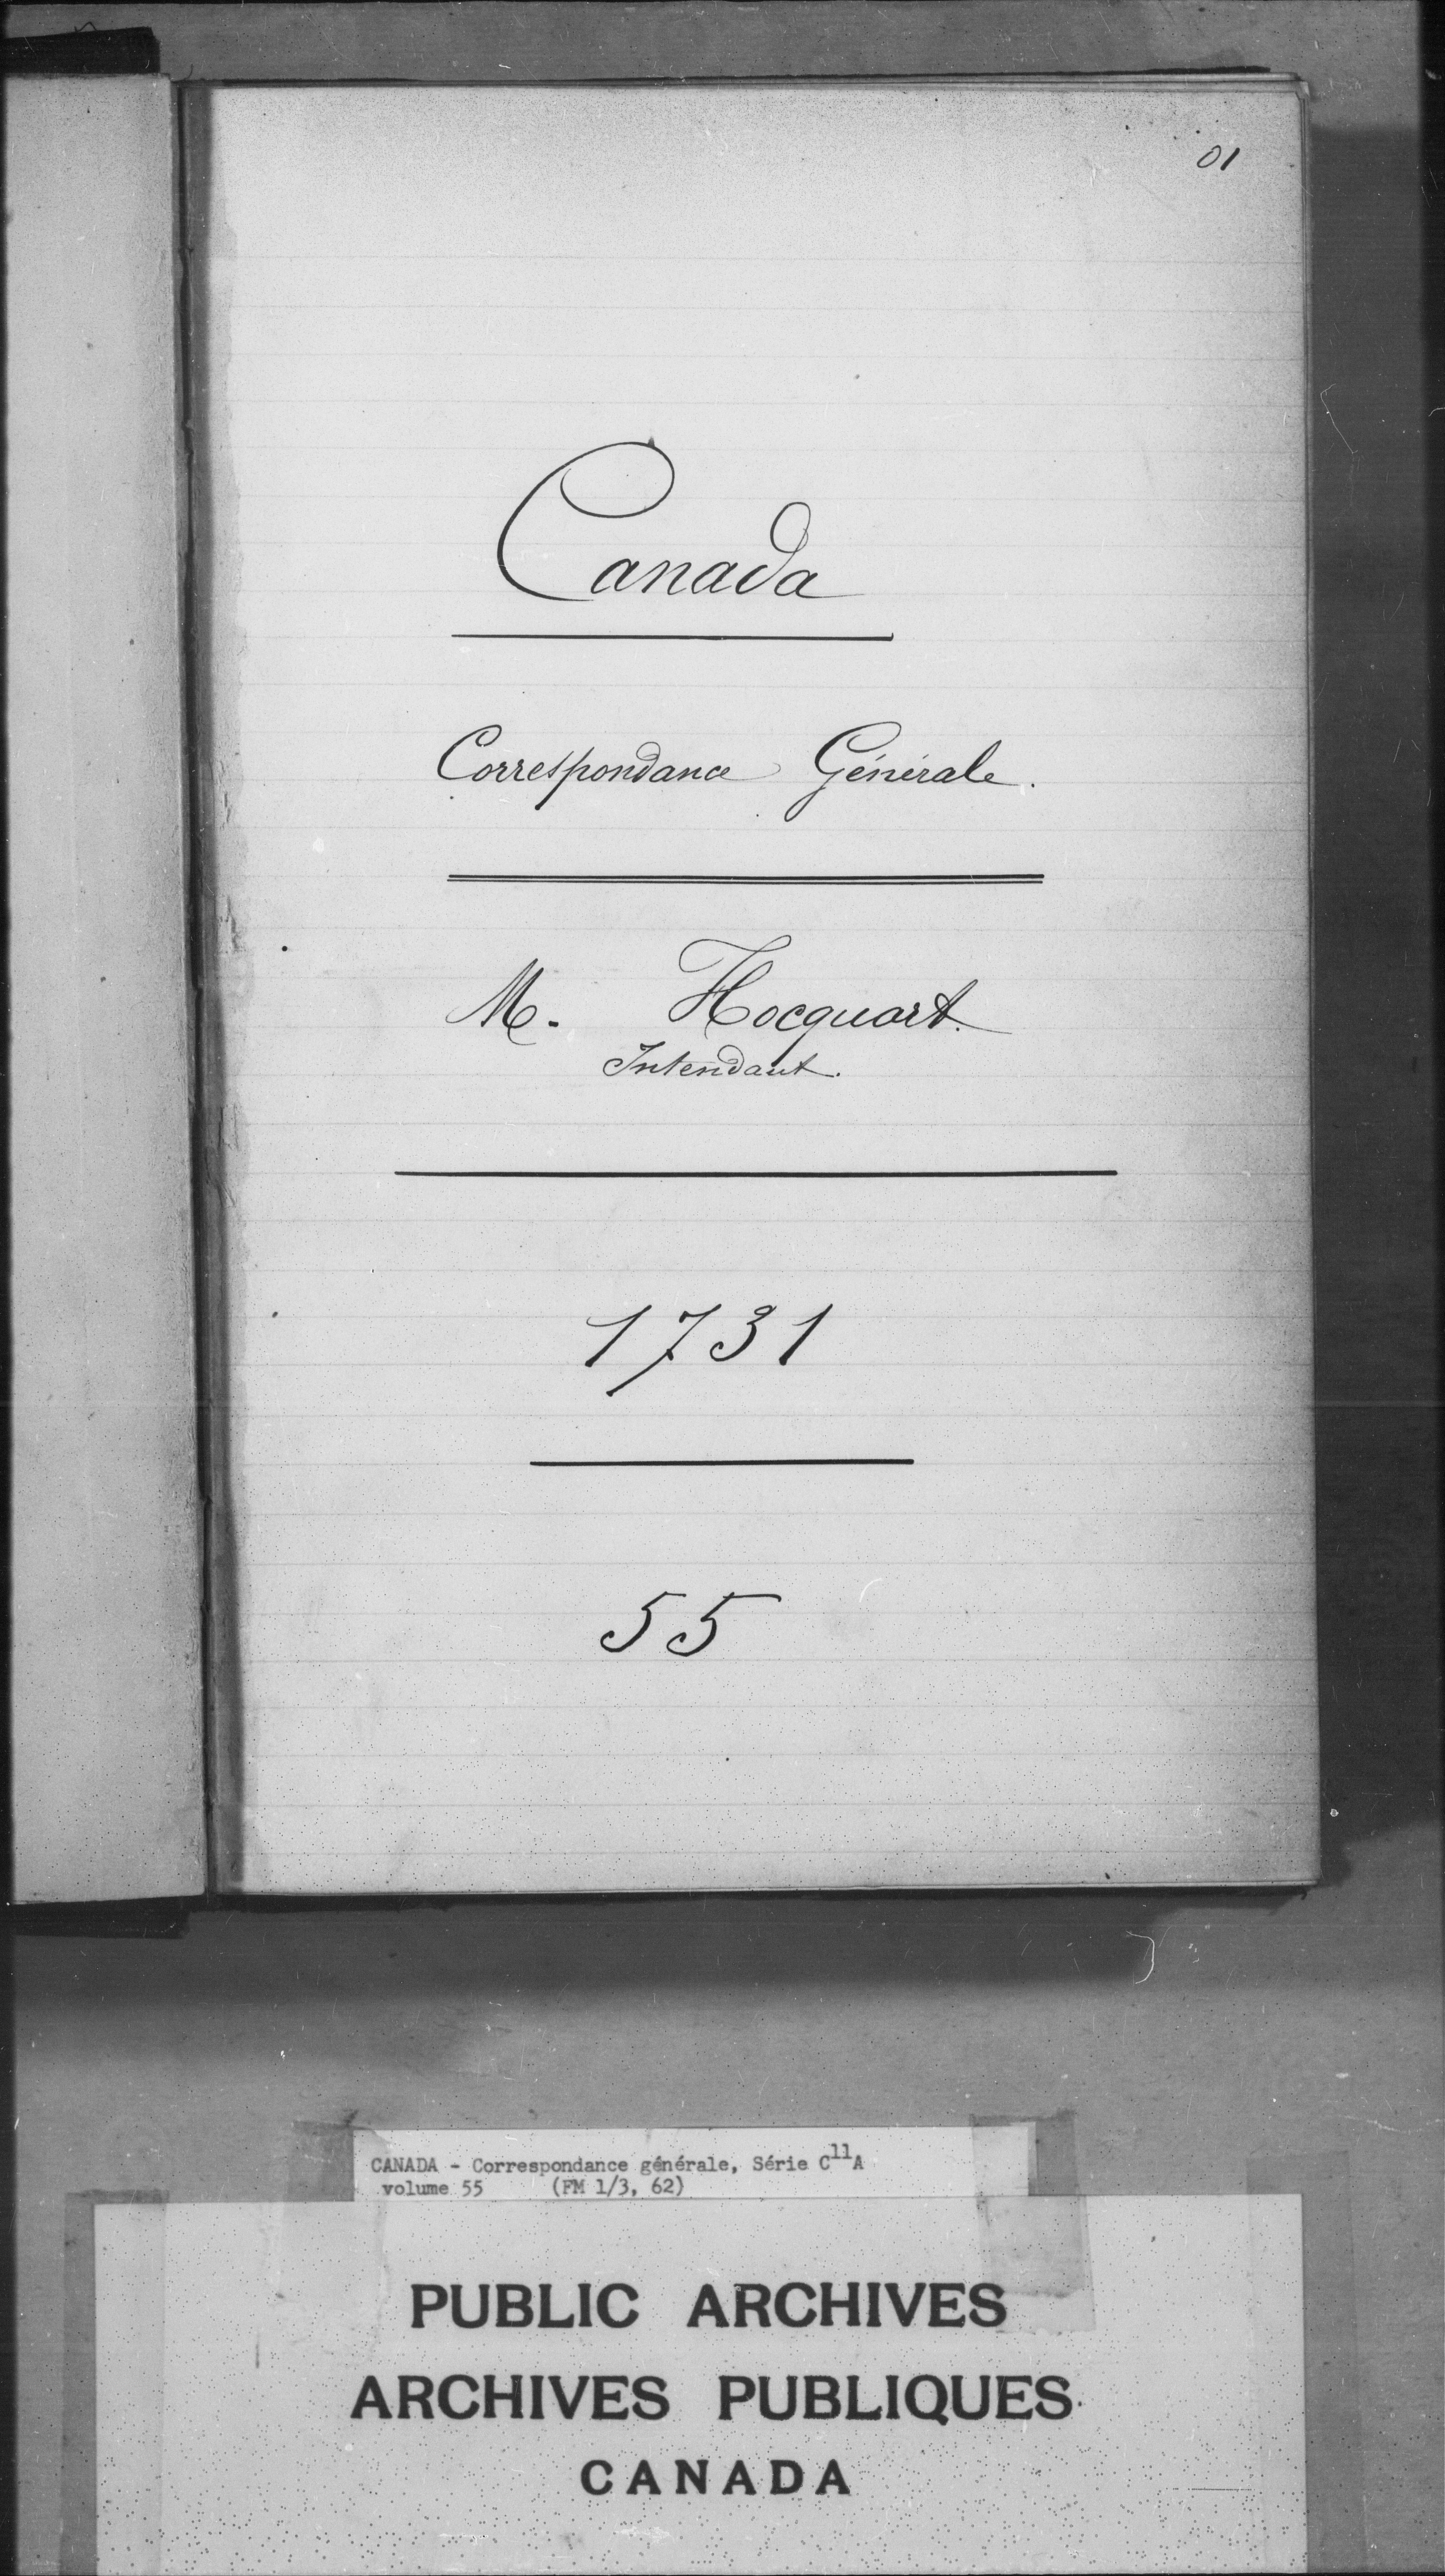 01
Canada
Correspondance Générale.
M. Hocquart.
Intendant.
1731
55
CANADA - Correspondance générale, Série C11A
volume 55 (FM 1/3, 62)
PUBLIC ARCHIVES
ARCHIVES PUBLIQUES
CANADA